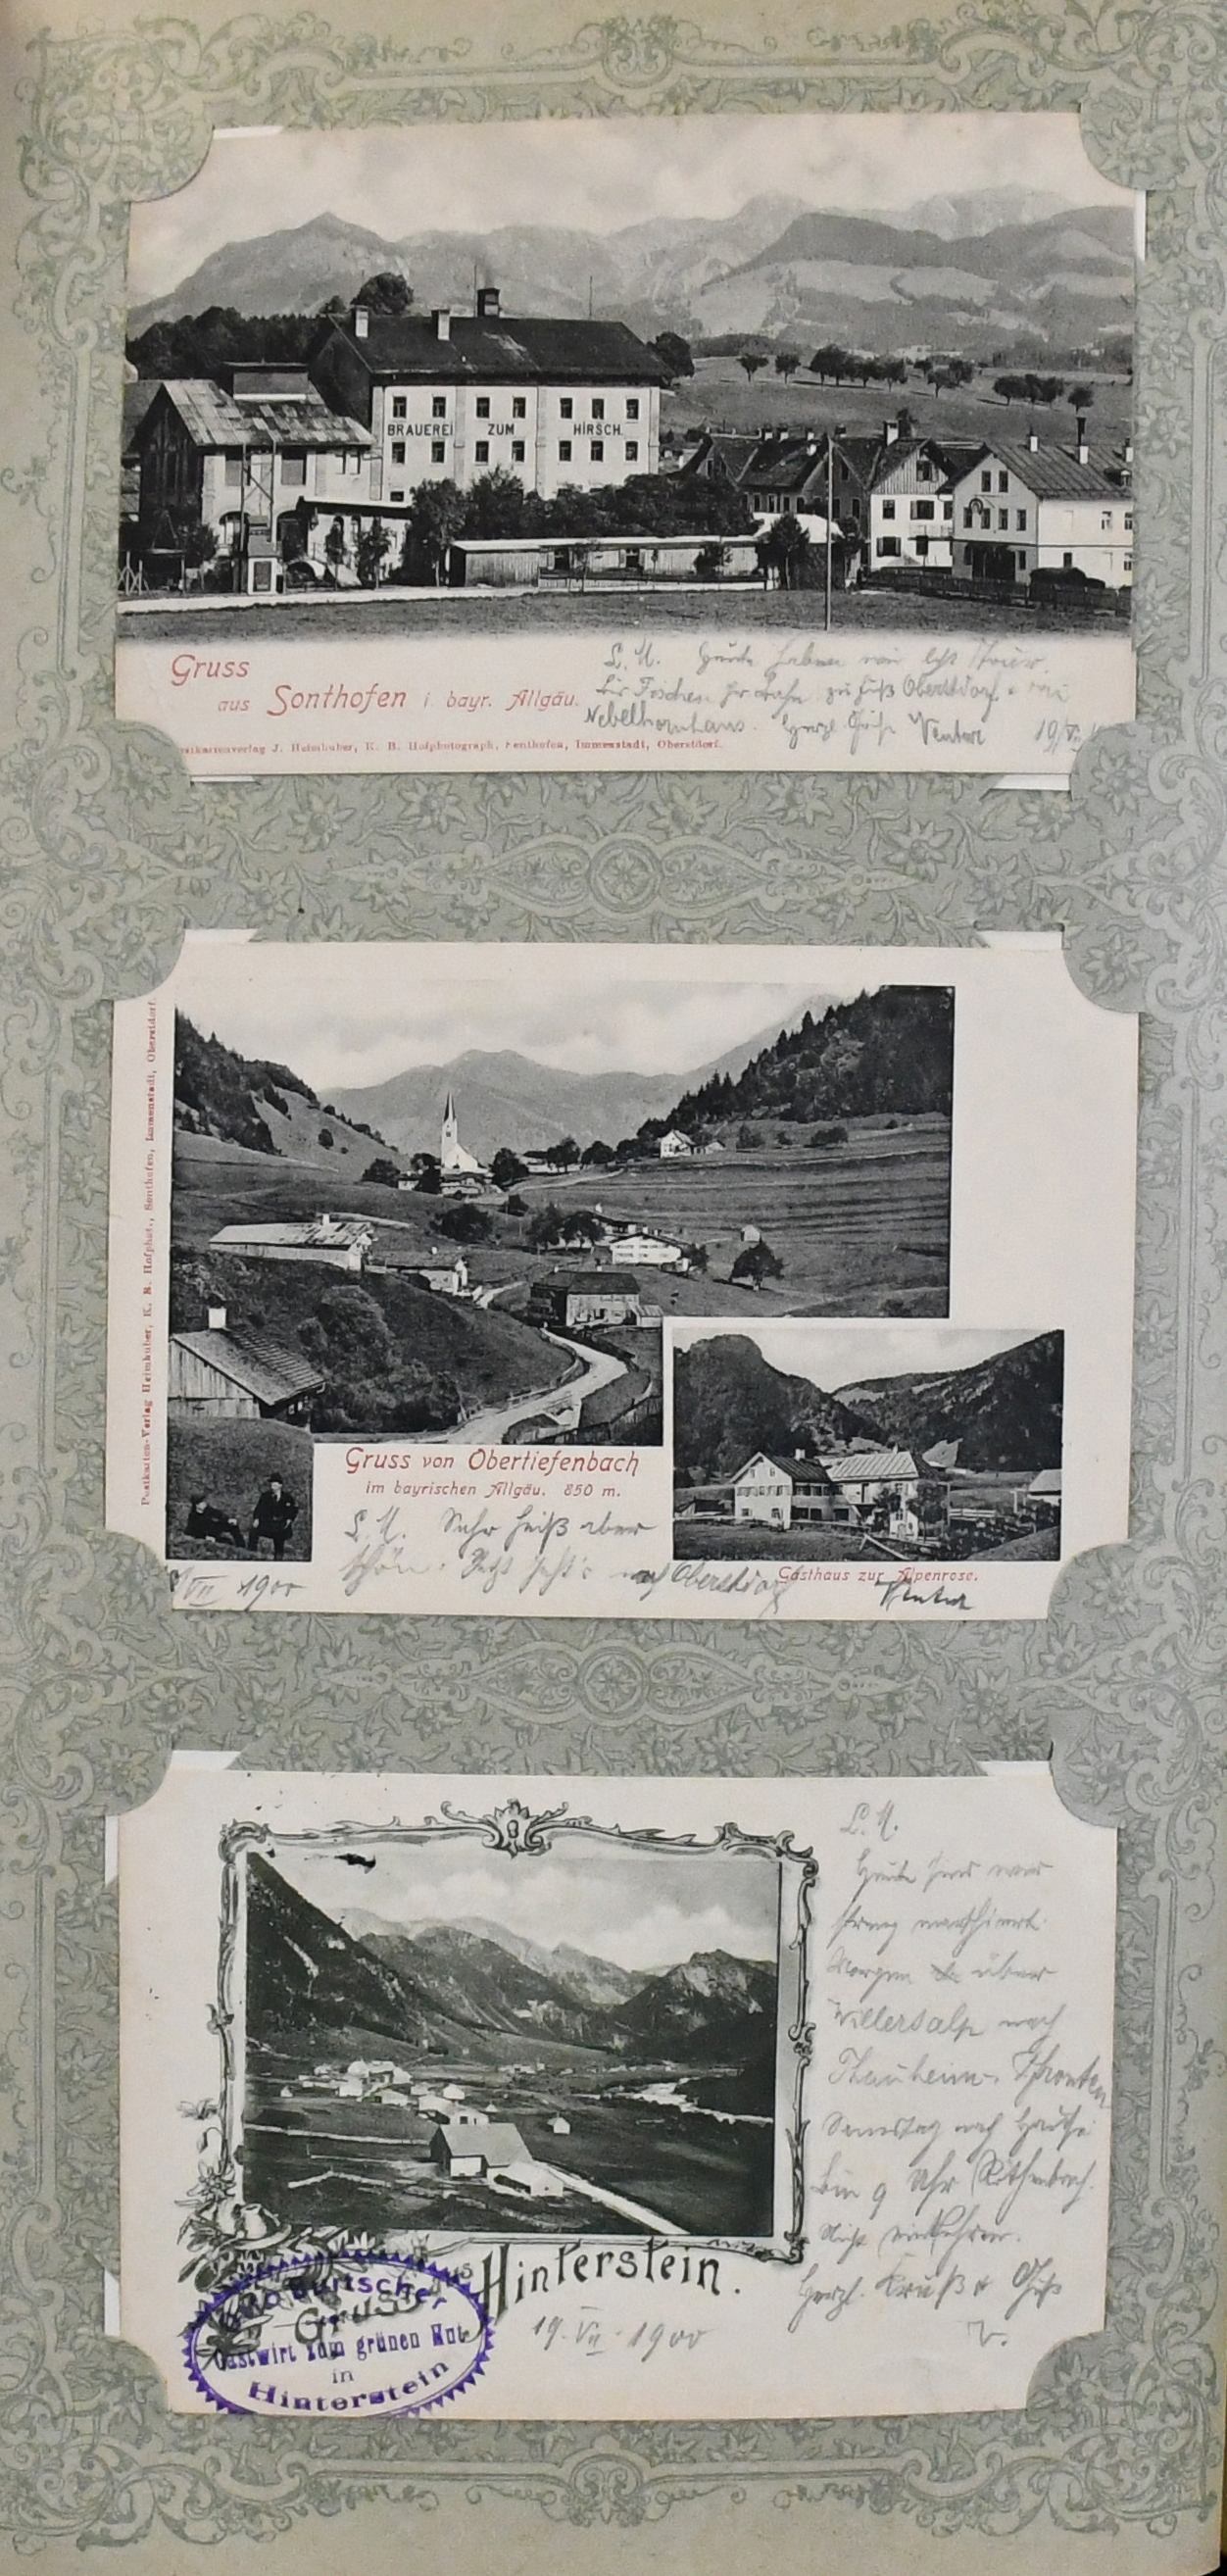 BRAUEREI ZUM HIRSCH.
Gruss
aus Sonthofen i. bayr. Allgäu.
L. U. Heute haben wir
bis Fischen per Bahn zu Fuß Oberstdorf.
Nebelhornhaus. Herzl. Grüße Venter 19/VII
Postkartenverlag J. Heimhuber, K. B. Hofphotograph, Sonthofen, Immenstadt, Oberstdorf.
Postkarten-Verlag Heimhuber, K. B. Hofphot., Sonthofen, Immenstadt, Oberstdorf.
Gruss von Obertiefenbach
im bayrischen Allgäu. 850 m.
L. U. Sehr heiß aber
schön. Jetzt geht's nach Oberstdorf
Gasthaus zur Alpenrose.
VII 1900
Venter
L. U.
Heute sind wir
streng marschiert.
Morgen über
Willersalp nach
Thanheim. Pfronten
Samstag nach Hause
bin 9 Uhr Röthenbach.
Nicht einkehren.
Herzl. Gruß &
V.
Gruss aus Hinterstein.
19. VII. 1900
Gastwirt zum grünen Hut
in
Hinterstein